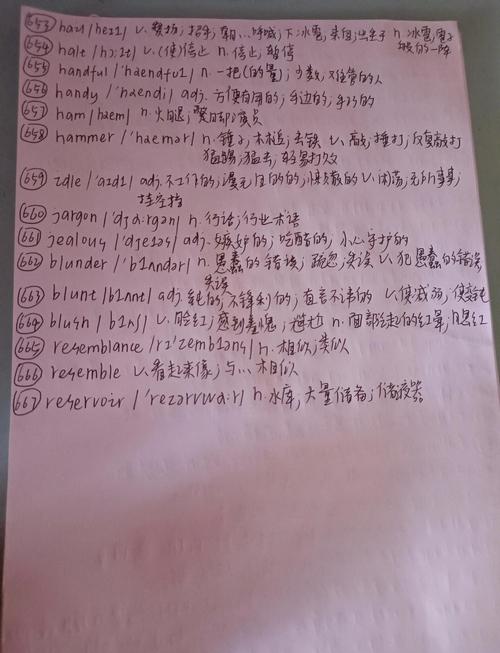 (653) hail /heɪl/ v. 赞扬; 招手; 朝…呼喊; 下冰雹; 来自; 出生于 n. 冰雹; 雹子
般的一阵
(654) halt /hɔːlt/ v. (使)停止 n. 停止; 暂停
(655) handful /ˈhændfʊl/ n. 一把(的量); 少数; 难管的人
(656) handy /ˈhændi/ adj. 方便有用的; 手边的; 手巧的
(657) ham /hæm/ n. 火腿; 蹩脚演员
(658) hammer /ˈhæmər/ n. 锤子; 木槌; 击铁 v. 敲; 捶打; 反复敲打
猛踢; 猛击; 轻易打败
(659) idle /ˈaɪdl/ adj. 不工作的; 漫无目的的; 懒散的 v. 闲荡; 无所事事;
挂空挡
(660) jargon /ˈdʒɑːrɡən/ n. 行话; 行业术语
(661) jealous /ˈdʒeləs/ adj. 嫉妒的; 吃醋的; 小心守护的
(662) blunder /ˈblʌndər/ n. 愚蠢的错误; 疏忽; 失误 v. 犯愚蠢的错误
失误
(663) blunt /blʌnt/ adj. 钝的; 不锋利的; 直言不讳的 v. 使减弱; 使变钝
(664) blush /blʌʃ/ v. 脸红; 感到羞愧; 尴尬 n. 面部泛起的红晕; 脸红
(665) resemblance /rɪˈzembləns/ n. 相似; 类似
(666) resemble v. 看起来像; 与…相似
(667) reservoir /ˈrezərvwɑːr/ n. 水库; 大量储备; 储液器